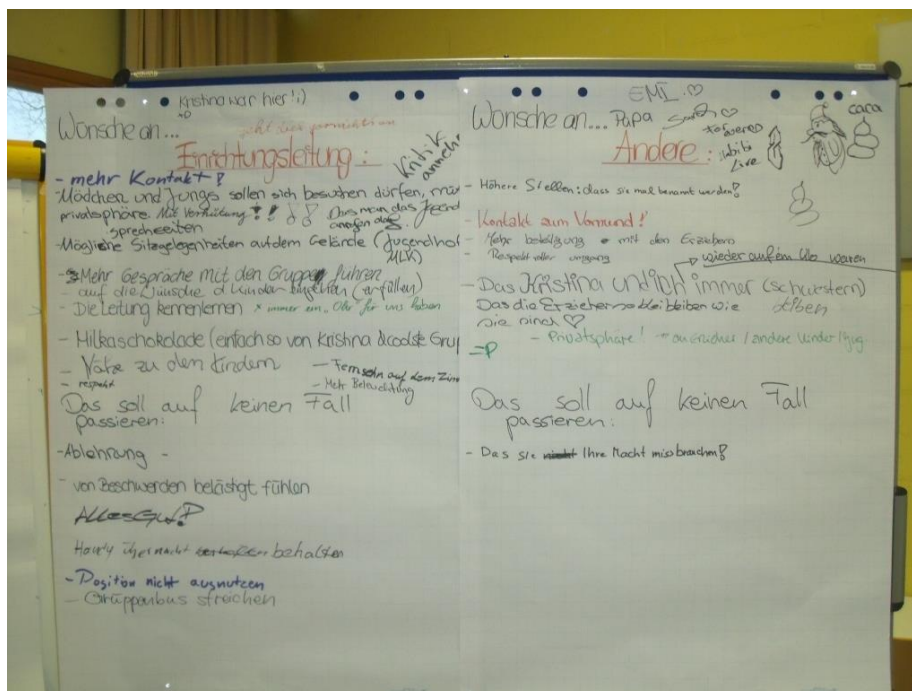 Kristina war hier!;)
Wünsche an...
Einrichtungsleitung:
Kritik
- mehr Kontakt?
- Mädchen und Jungs sollen sich besuchen dürfen, mit
privatsphäre. Mit Verhütung?!
Dass man das Jugend
sprechzeiten
- Mögliche Sitzgelegenheiten auf dem Gelände (Jugendhof
MLK)
- Mehr Gespräche mit den Gruppen führen
- auf die Wünsche d Kinder eingehen (erfüllen)
- Die Leitung kennenlernen * immer ein "Ohr" für uns haben
- Milkaschokolade (einfach so von Kristina & coolste Grup
- Nähe zu den Kindern
- Fernsehn auf dem Zim
- respekt
- Mehr Beleuchtung
Das soll auf keinen Fall
passieren:
- Ablehnung -
- von Beschwerden belästigt fühlen
Alles Gut?
behalten
- Position nicht ausnutzen
- Gruppenbus streichen
EMI ♡
Wünsche an... Papa
Andere:
cara
- Höhere Stellen: dass sie mal benannt werden?
- Kontakt zum Vormund!
- Mehr beteiligung mit den Erziehern
- Respekt voller umgang
wieder auf em Klo waren
- Das Kristina und ich immer (schwestern)
Das die Erzieher so bleiben wie
sie sind ♡
- Privatsphäre!
=P
Das soll auf keinen Fall
passieren:
- Das sie Ihre Macht missbrauchen?